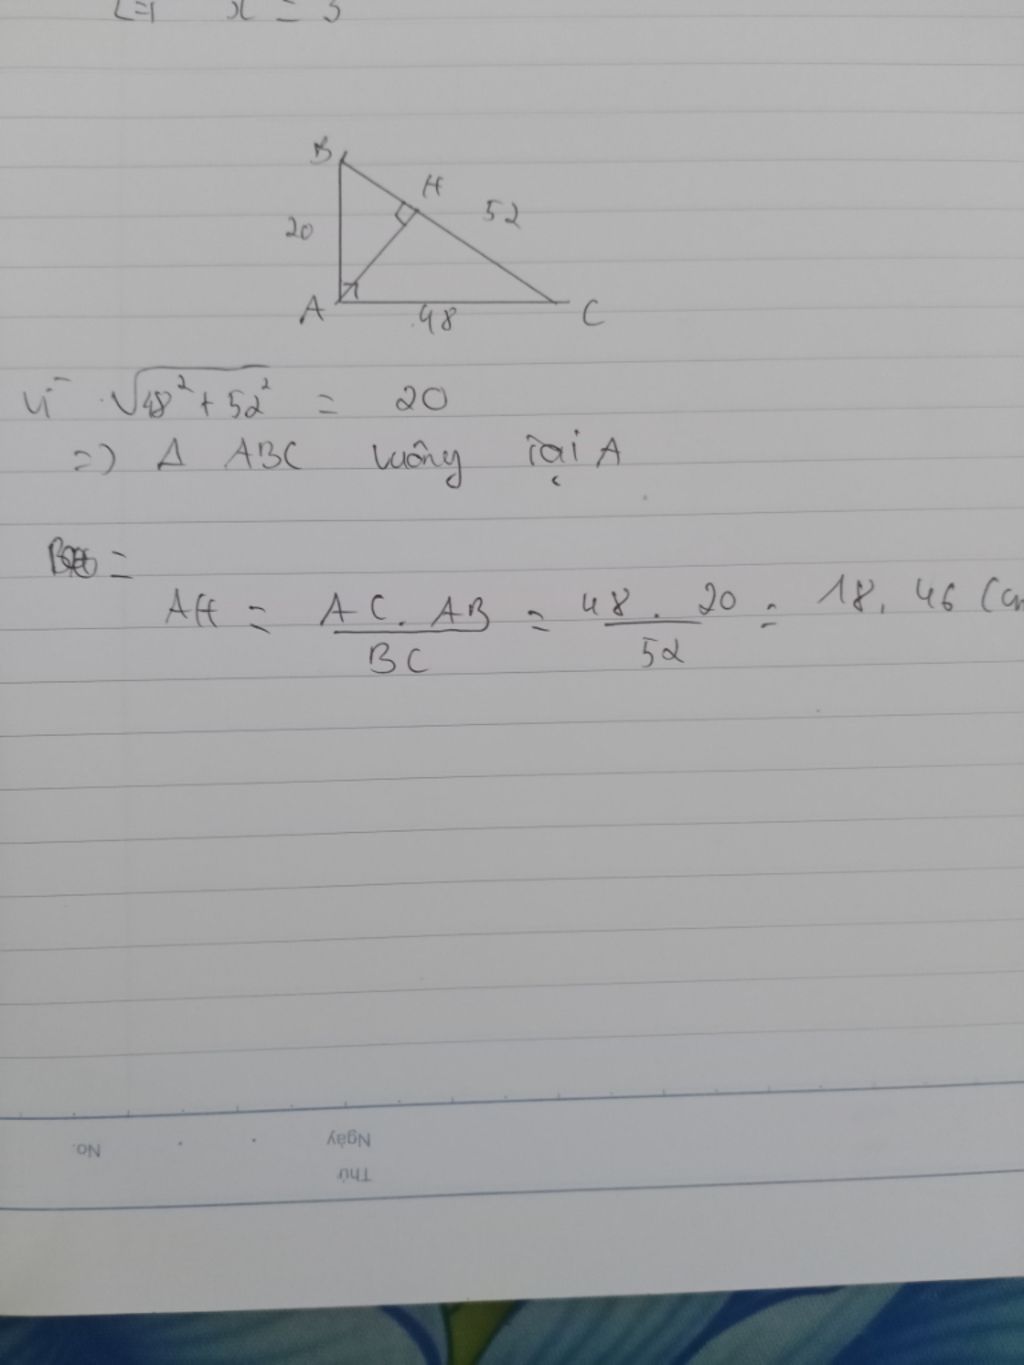 x = 3
B
H
52
20
A
48
C
Vì √48² + 52² = 20
=> Δ ABC vuông tại A
=
AH = AC. AB / BC = 48. 20 / 52 = 18,46 (cm
No.
Ngày
Thứ